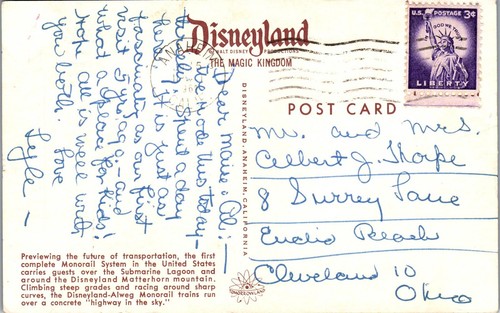 Disneyland
WALT DISNEY PRODUCTIONS
THE MAGIC KINGDOM
ANAHEIM
U.S. POSTAGE 3¢
IN GOD WE TRUST
LIBERTY
POST CARD
DISNEYLAND, ANAHEIM, CALIFORNIA
Dear Marie & Al: —
We rode this today —
Really! Spent a day
here & it is just as
fascinating as our first
visit 5 yrs. ago — and
what a place for kids!
Hope all is well with
you both.
Love
Lyle —
Mr. and Mrs.
Albert J. Thorpe
8 Surrey Lane
Euclid Beach
Cleveland 10
Ohio
Previewing the future of transportation, the first
complete Monorail System in the United States
carries guests over the Submarine Lagoon and
around the Disneyland Matterhorn mountain.
Climbing steep grades and racing around sharp
curves, the Disneyland-Alweg Monorail trains run
over a concrete "highway in the sky."
TOMORROWLAND